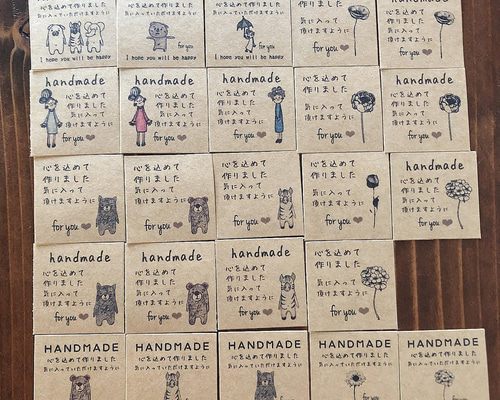 心を込めて作りました
気に入っていただけますように
I hope you will be happy
心を込めて作りました
気に入っていただけますように
for you
I hope you will be happy
心を込めて作りました
気に入っていただけますように
for you
I hope you will be happy
作りました
気に入って
頂けますように
for you
作りました
気に入って
頂けますように
for you
handmade
心を込めて
作りました
気に入って
頂けますように
for you
handmade
心を込めて
作りました
気に入って
頂けますように
for you
handmade
心を込めて
作りました
気に入って
頂けますように
for you
心を込めて
作りました
気に入って
頂けますように
for you
handmade
心を込めて
作りました
気に入って
頂けますように
for you
心を込めて
作りました
気に入って
頂けますように
for you
心を込めて
作りました
気に入って
頂けますように
for you
心を込めて
作りました
気に入って
頂けますように
for you
心を込めて
作りました
気に入って
頂けますように
for you
handmade
心を込めて
作りました
気に入って
頂けますように
for you
handmade
心を込めて
作りました
気に入って
頂けますように
for you
handmade
心を込めて
作りました
気に入って
頂けますように
for you
handmade
心を込めて
作りました
気に入って
頂けますように
for you
心を込めて
作りました
気に入って
頂けますように
for you
HANDMADE
心を込めて作りました
気に入っていただけますように
HANDMADE
心を込めて作りました
気に入っていただけますように
HANDMADE
心を込めて作りました
気に入っていただけますように
HANDMADE
心を込めて作りました
気に入っていただけますように
HANDMADE
心を込めて作りました
気に入っていただけますように